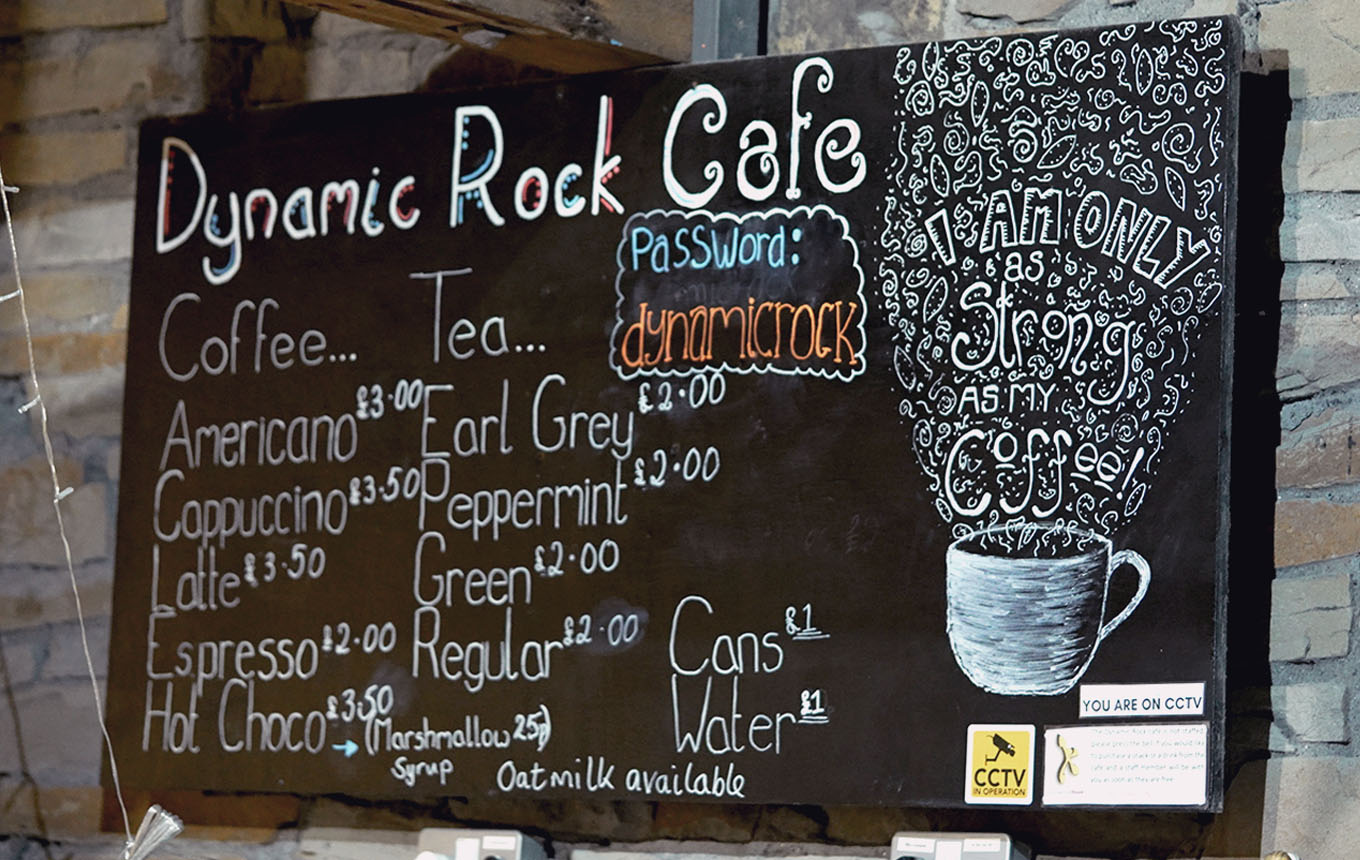 Dynamic Rock Cafe
Password:
dynamicrock
Coffee...
Americano £3.00
Cappuccino £3.50
Latte £3.50
Espresso £2.00
Hot Choco £3.50
(Marshmallow 25p)
Syrup
Tea...
Earl Grey £2.00
Peppermint £2.00
Green £2.00
Regular £2.00
Oatmilk available
Cans £1
Water £1
I AM ONLY
as
Strong
AS MY
Coffee!
YOU ARE ON CCTV
CCTV
IN OPERATION
The Dynamic Rock cafe is not staffed
please press the bell if you would like
to purchase a snack or a drink from the
cafe and a staff member will be with
you as soon as they are free.